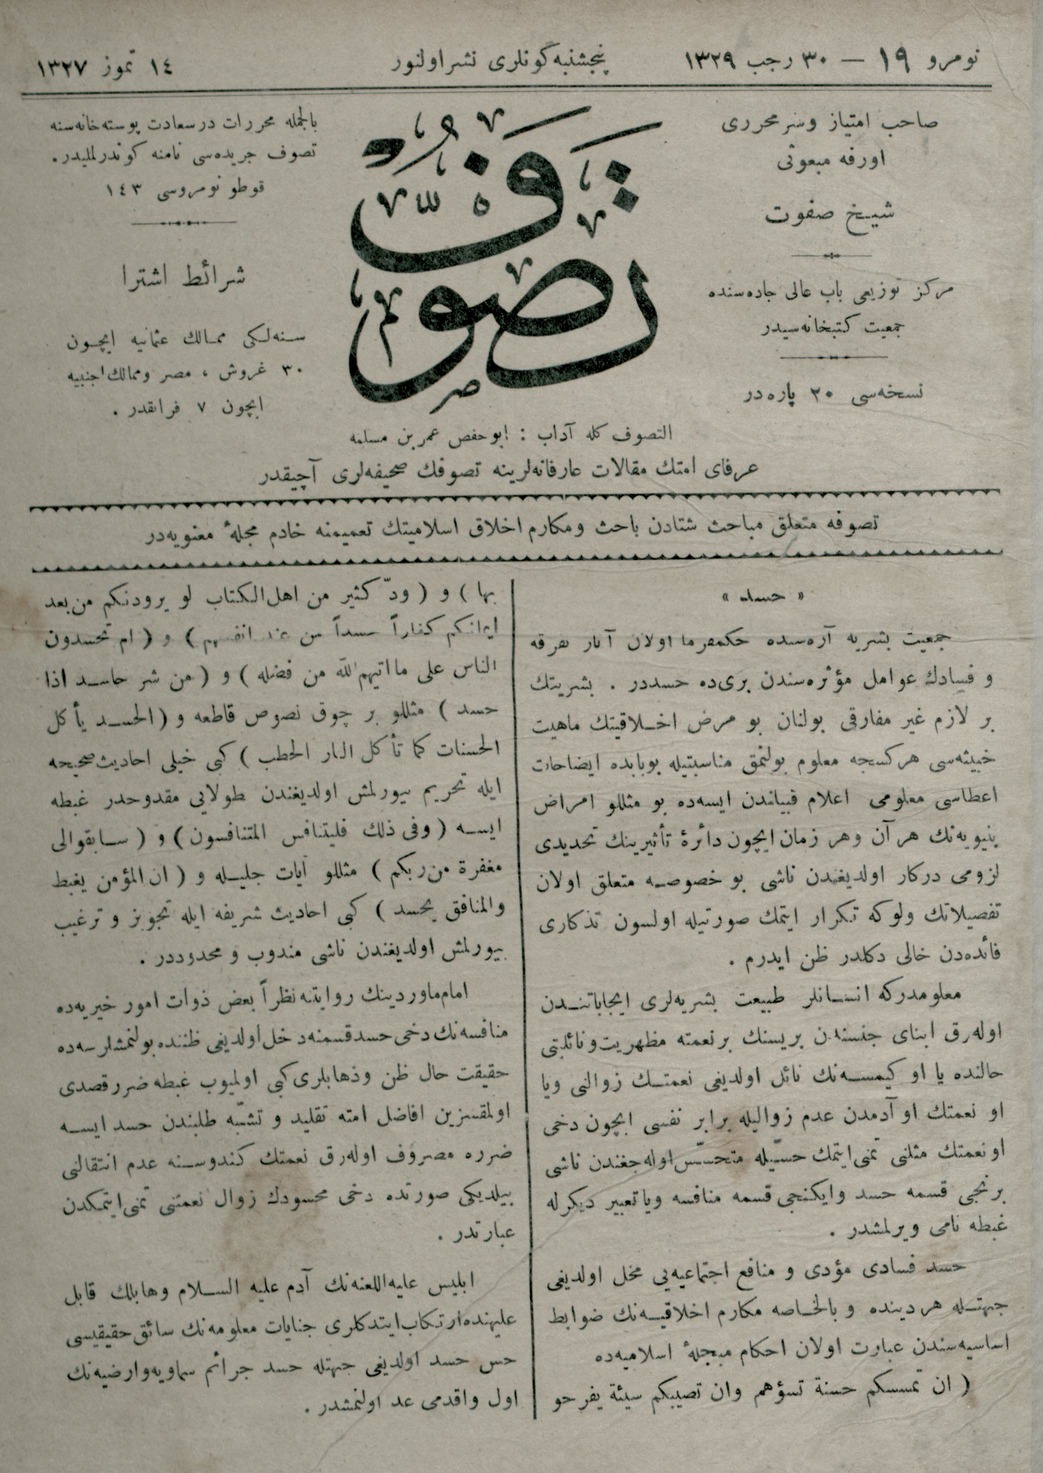 نومرو ١٩ — ٣٠ رجب ١٣٢٩
پنجشنبه كونلری نشر اولنور
١٤ تموز ١٣٢٧
صاحب امتیاز وسر محرری
اورفه مبعوثی
شیخ صفوت
مركز توزیعی باب عالی جاده سنده
جمعیت كتبخانه سیدر
نسخه سی ٢٠ پاره در
تصوف
بالجمله محررات درسعادت پوسته خانه سنه
تصوف جریده سی نامنه كوندرلملیدر.
قوطو نومروسی ١٤٣
شرائط اشترا
سنه لكی ممالك عثمانیه ایچون
٣٠ غروش ، مصر وممالك اجنبیه
ایچون ٧ فرانقدر .
التصوف كله آداب : ابو حفص عمر بن مسلمه
عرفای امتك مقالات عارفانه لرینه تصوفك صحیفه لری آچیقدر
تصوفه متعلق مباحث شتادن باحث ومكارم اخلاق اسلامیتك تعمیمنه خادم مجلهٔ معنویه در
« حسد »
جمعیت بشریه آره سنده حكمفرما اولان آثار تفرقه
و فسادك عوامل مؤثره سندن بری ده حسددر . بشریتك
بر لازم غیر مفارقی بولنان بو مرض اخلاقیتك ماهیت
خبیثه سی هركسجه معلوم بولنمق مناسبتیله بوبابده ایضاحات
اعطاسی معلومی اعلام قبیلندن ایسه ده بو مثللو امراض
بنیویه نك هر آن وهر زمان ایچون دائرهٔ تأثیرینك تحدیدی
لزومی دركار اولدیغندن ناشی بو خصوصه متعلق اولان
تفصیلاتك ولوكه تكرار ایتمك صورتیله اولسون تذكاری
فائده دن خالی دكلدر ظن ایدرم .
معلومدركه انسانلر طبیعت بشریه لری ایجاباتندن
اوله رق ابنای جنسندن بریسنك بر نعمته مظهریت ونائلیتی
حالنده یا او كیمسه نك نائل اولدیغی نعمتك زوالنی ویا
او نعمتك او آدمدن عدم زوالیله برابر نفسی ایچون دخی
او نعمتك مثلنی تمنی ایتمك حسیله متحسّس اوله جغندن ناشی
برنجی قسمه حسد وایكنجی قسمه منافسه ویا تعبیر دیكرله
غبطه نامی ویرلمشدر .
حسد فسادی مؤدی و منافع اجتماعیه یی مخل اولدیغی
جهتله هر دینده و بالخاصه مكارم اخلاقیه نك ضوابط
اساسیه سندن عبارت اولان احكام مبجلهٔ اسلامیه ده
( ان تمسسكم حسنة تسؤهم وان تصیبكم سیئة یفرحو
بها ) و ( ودّ كثیر من اهل الكتاب لو یرودنكم من بعد
ایمانكم كفاراً حسداً من عند انفسهم ) و ( ام تحسدون
الناس علی ما اتیهم الله من فضله ) و ( من شر حاسد اذا
حسد ) مثللو بر چوق نصوص قاطعه و ( الحسد یأكل
الحسنات كما تأكل النار الحطب ) كبی خیلی احادیث صحیحه
ایله تحریم بیورلمش اولدیغندن طولایی مقدوحدر غبطه
ایسه ( وفی ذلك فلیتنافس المتنافسون ) و ( سابقوالی
مغفرة من ربكم ) مثللو آیات جلیله و ( ان المؤمن یغبط
والمنافق یحسد ) كبی احادیث شریفه ایله تجویز و ترغیب
بیورلمش اولدیغندن ناشی مندوب و محدوددر .
امام ماوردینك روایتنه نظراً بعض ذوات امور خیریه ده
منافسه نك دخی حسد قسمنه دخل اولدیغی ظننده بولنمشلرسه ده
حقیقت حال ظن وذهابلری كبی اولمیوب غبطه ضرر قصدی
اولمقسزین افاضل امته تقلید و تشبّه طلبندن حسد ایسه
ضرره مصروف اوله رق نعمتك كندوسنه عدم انتقالنی
بیلدیكی صورتده دخی محسودك زوال نعمتنی تمنی ایتمكدن
عبارتدر .
ابلیس علیه اللعنه نك آدم علیه السلام وهابلك قابل
علیهنده ارتكاب ایتدكلری جنایات معلومه نك سائق حقیقیسی
حس حسد اولدیغی جهتله حسد جرائم سماویه وارضیه نك
اول واقدمی عد اولنمشدر .